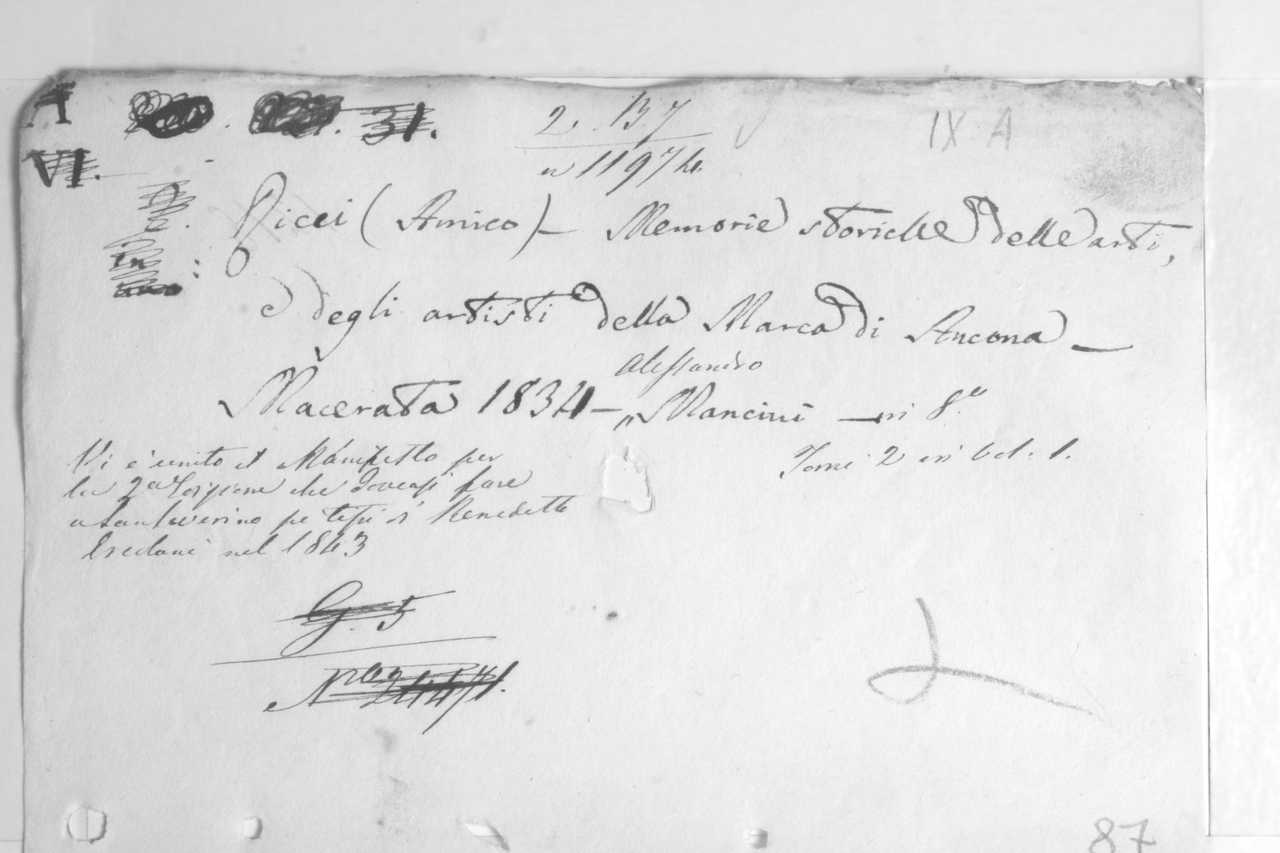 A 31. 2. 137 IX A
VI. n 11974.
in
Ricci (Amico) — Memorie storiche delle arti,
e degli artisti della Marca di Ancona —
Alessandro
Macerata 1834 — Mancini — in 8.º
Vi è unito il Manifesto per Tomi 2 in Vol. 1.
la 2ª che doveasi fare
a Sanseverino pe tipi di Benedetto
Ercolani nel 1843
G. 5
87